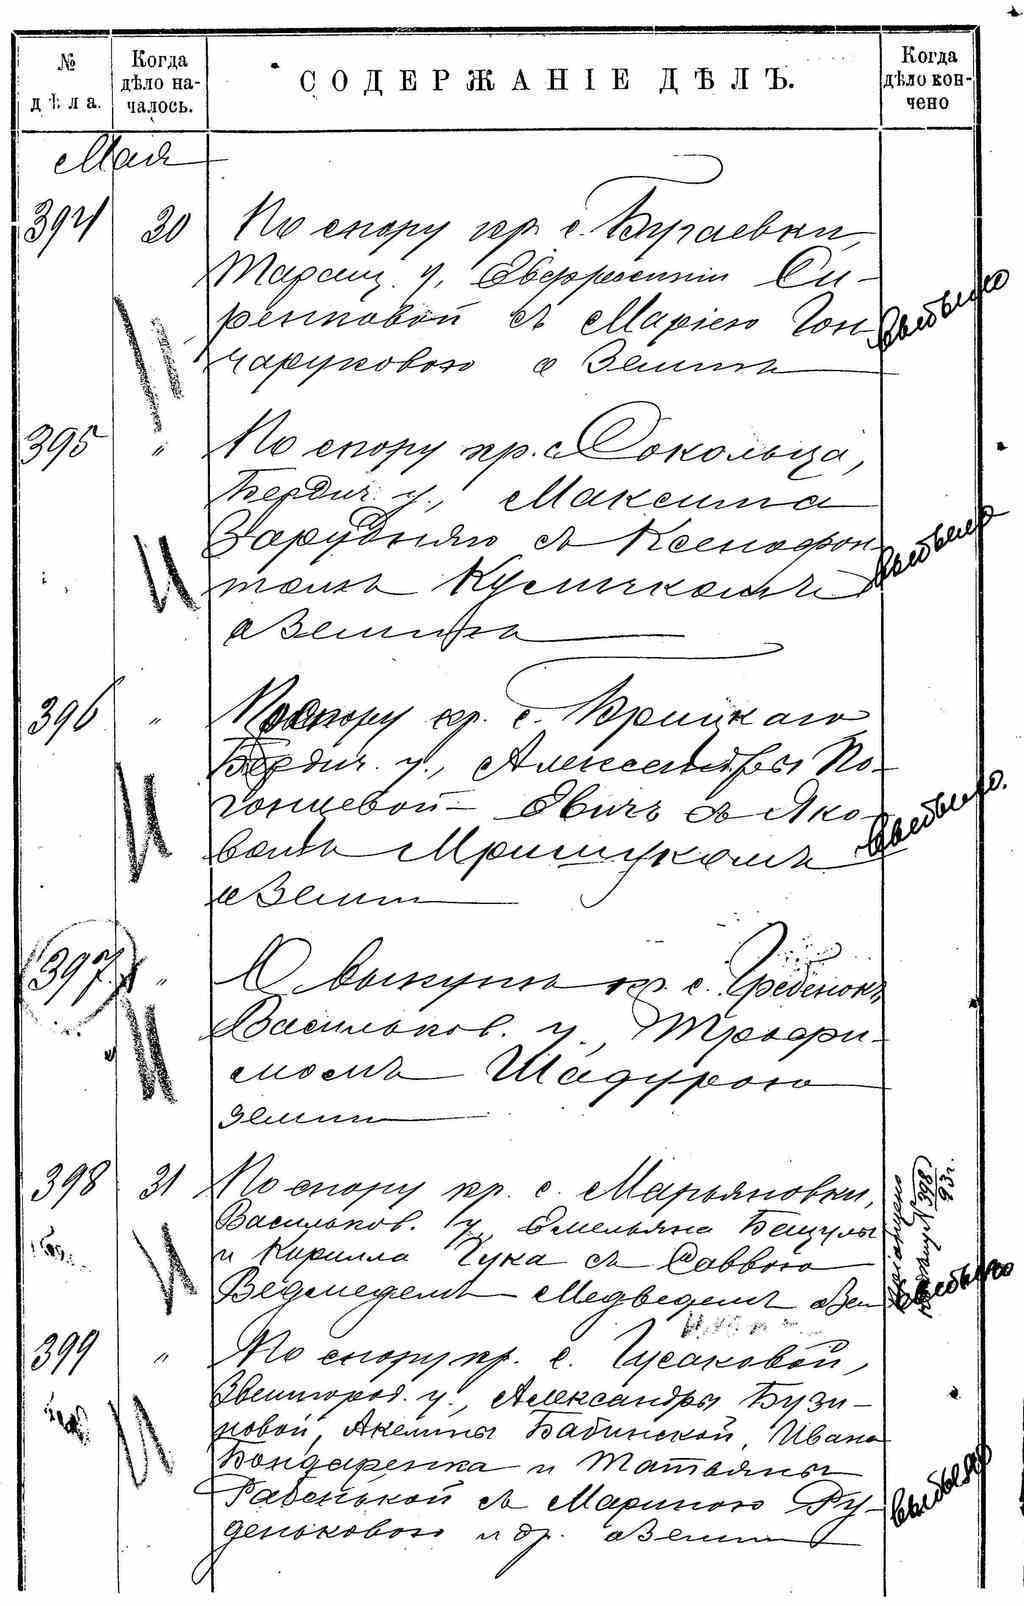 № дѣла.
Когда дѣло на-
чалось.
СОДЕРЖАНІЕ ДѢЛЪ.
Когда дѣло кон-
чено
Мая
394 30 По спору кр. с. Бугаевки,
Таращ. у. Евфросиніи Си-
ренковой съ Маріею Гон-
чаруковою о земли
выбыло
395 " По спору кр. с. Сокольца,
Бердич. у., Максима
Зарудняго съ Ксенофон-
томъ
о земли
выбыло
396 " По спору кр. с. Брицкаго
Бердич. у., Александры По-
гонцевой - Евичъ съ Яко-
вомъ Мрищукомъ
о земли
выбыло.
397. " О выкупѣ кр. с. Гребенокъ
Васильков. у., Трофи-
момъ Шадурою
земли
398 31 По спору кр. с. Марьяновки,
Васильков. у. Емельяна Бацулы
и Кирилла Чука съ Саввою
Ведмедемъ - Медведемъ о зем
№ 398
93 г.
выбыло
399 " По спору кр. с. Гусаковой,
Звенигород. у., Александры Бузи-
новой, Акелины Бабинской, Ивана
Бондаренка и Татьяны
Рабенькой съ Мариною Ру-
деньковою и др. о земли
выбыло